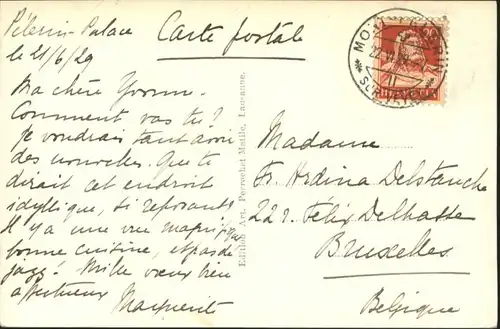 Pélerin-Palace
le 21/6/29
Carte postale
Ma chère Yvonne.
Comment vas tu?
Je voudrais tant avoir
des nouvelles. Que te
dirait cet endroit
idyllique, si reposant
Il y a une vue magnifique
bonne cuisine, et pas de
jazz! Mille vœux bien
affectueux Marguerite
Edition Art. Perrochet Matile, Lausanne.
MONT PELERIN
HELVETIA
Madame
Fr. Delstanche
22 r. Félix Delhasse
Bruxelles
Belgique